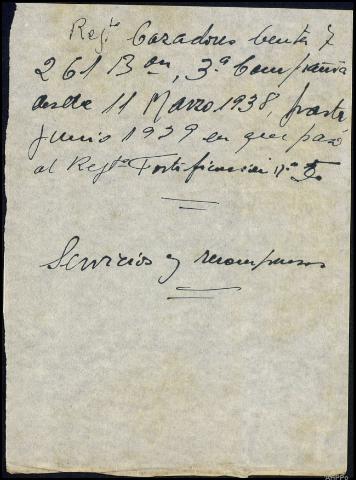 Regto Cazadores Ceuta 7
261 Bon, 3ª Compañia
desde 11 Marzo 1938, hasta
junio 1939 en que pasó
al Regto Fortificacion nº
Servicios y recompensas
AHPPo